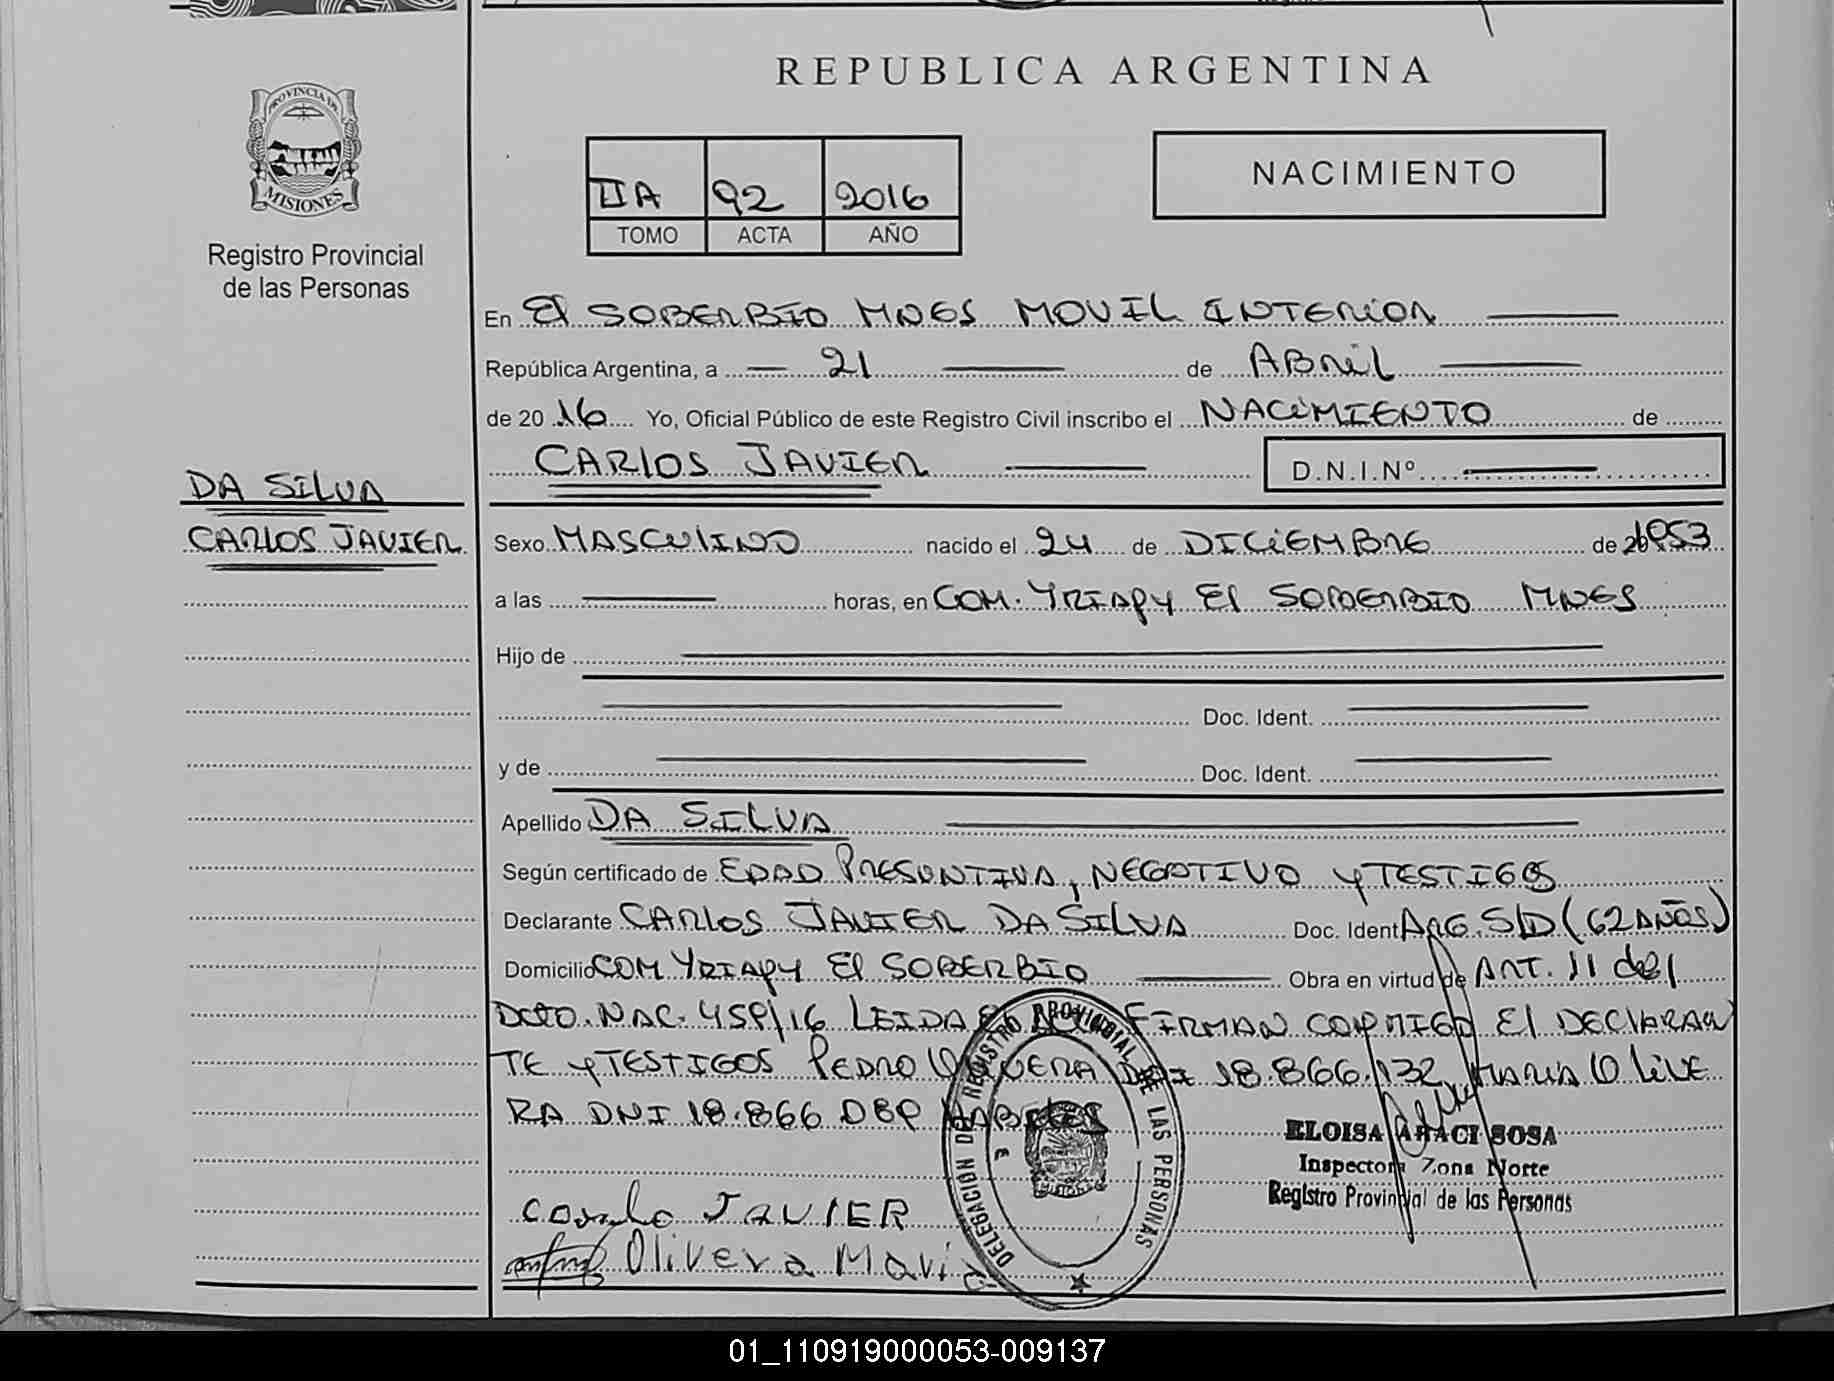 REPUBLICA ARGENTINA
PROVINCIA DE
MISIONES
Registro Provincial
de las Personas
NACIMIENTO
IIA 92 2016
TOMO ACTA AÑO
En El SOBERBIO MNES MOVIL INTERIOR
República Argentina, a 21 de ABRIL
de 2016 Yo, Oficial Público de este Registro Civil inscribo el NACIMIENTO de
CARLOS JAVIER D.N.I.Nº
DA SILVA
CARLOS JAVIER
Sexo MASCULINO nacido el 24 de DICIEMBRE de 1953
a las horas, en COM. YRIAPY El SOBERBIO MNES
Hijo de
Doc. Ident.
y de Doc. Ident.
Apellido DA SILVA
Según certificado de EDAD PRESUNTIVA, NEGATIVO y TESTIGOS
Declarante CARLOS JAVIER DA SILVA Doc. Ident ARG. S/D (62 AÑOS)
Domicilio COM YRIAPY El SOBERBIO Obra en virtud de ART. 11 del
DCTO. NAC. 459/16 LEIDA FIRMAN CONMIGO El DECLARAN
TE y TESTIGOS PEDRO 18.866.132, MARIA OLIVE
RA DNI 18.866
DELEGACIÓN DEL REGISTRO PROVINCIAL DE LAS PERSONAS
ELOISA ARACI SOSA
Inspectora Zona Norte
Registro Provincial de las Personas
JAVIER
Olivera Mari
01_110919000053-009137